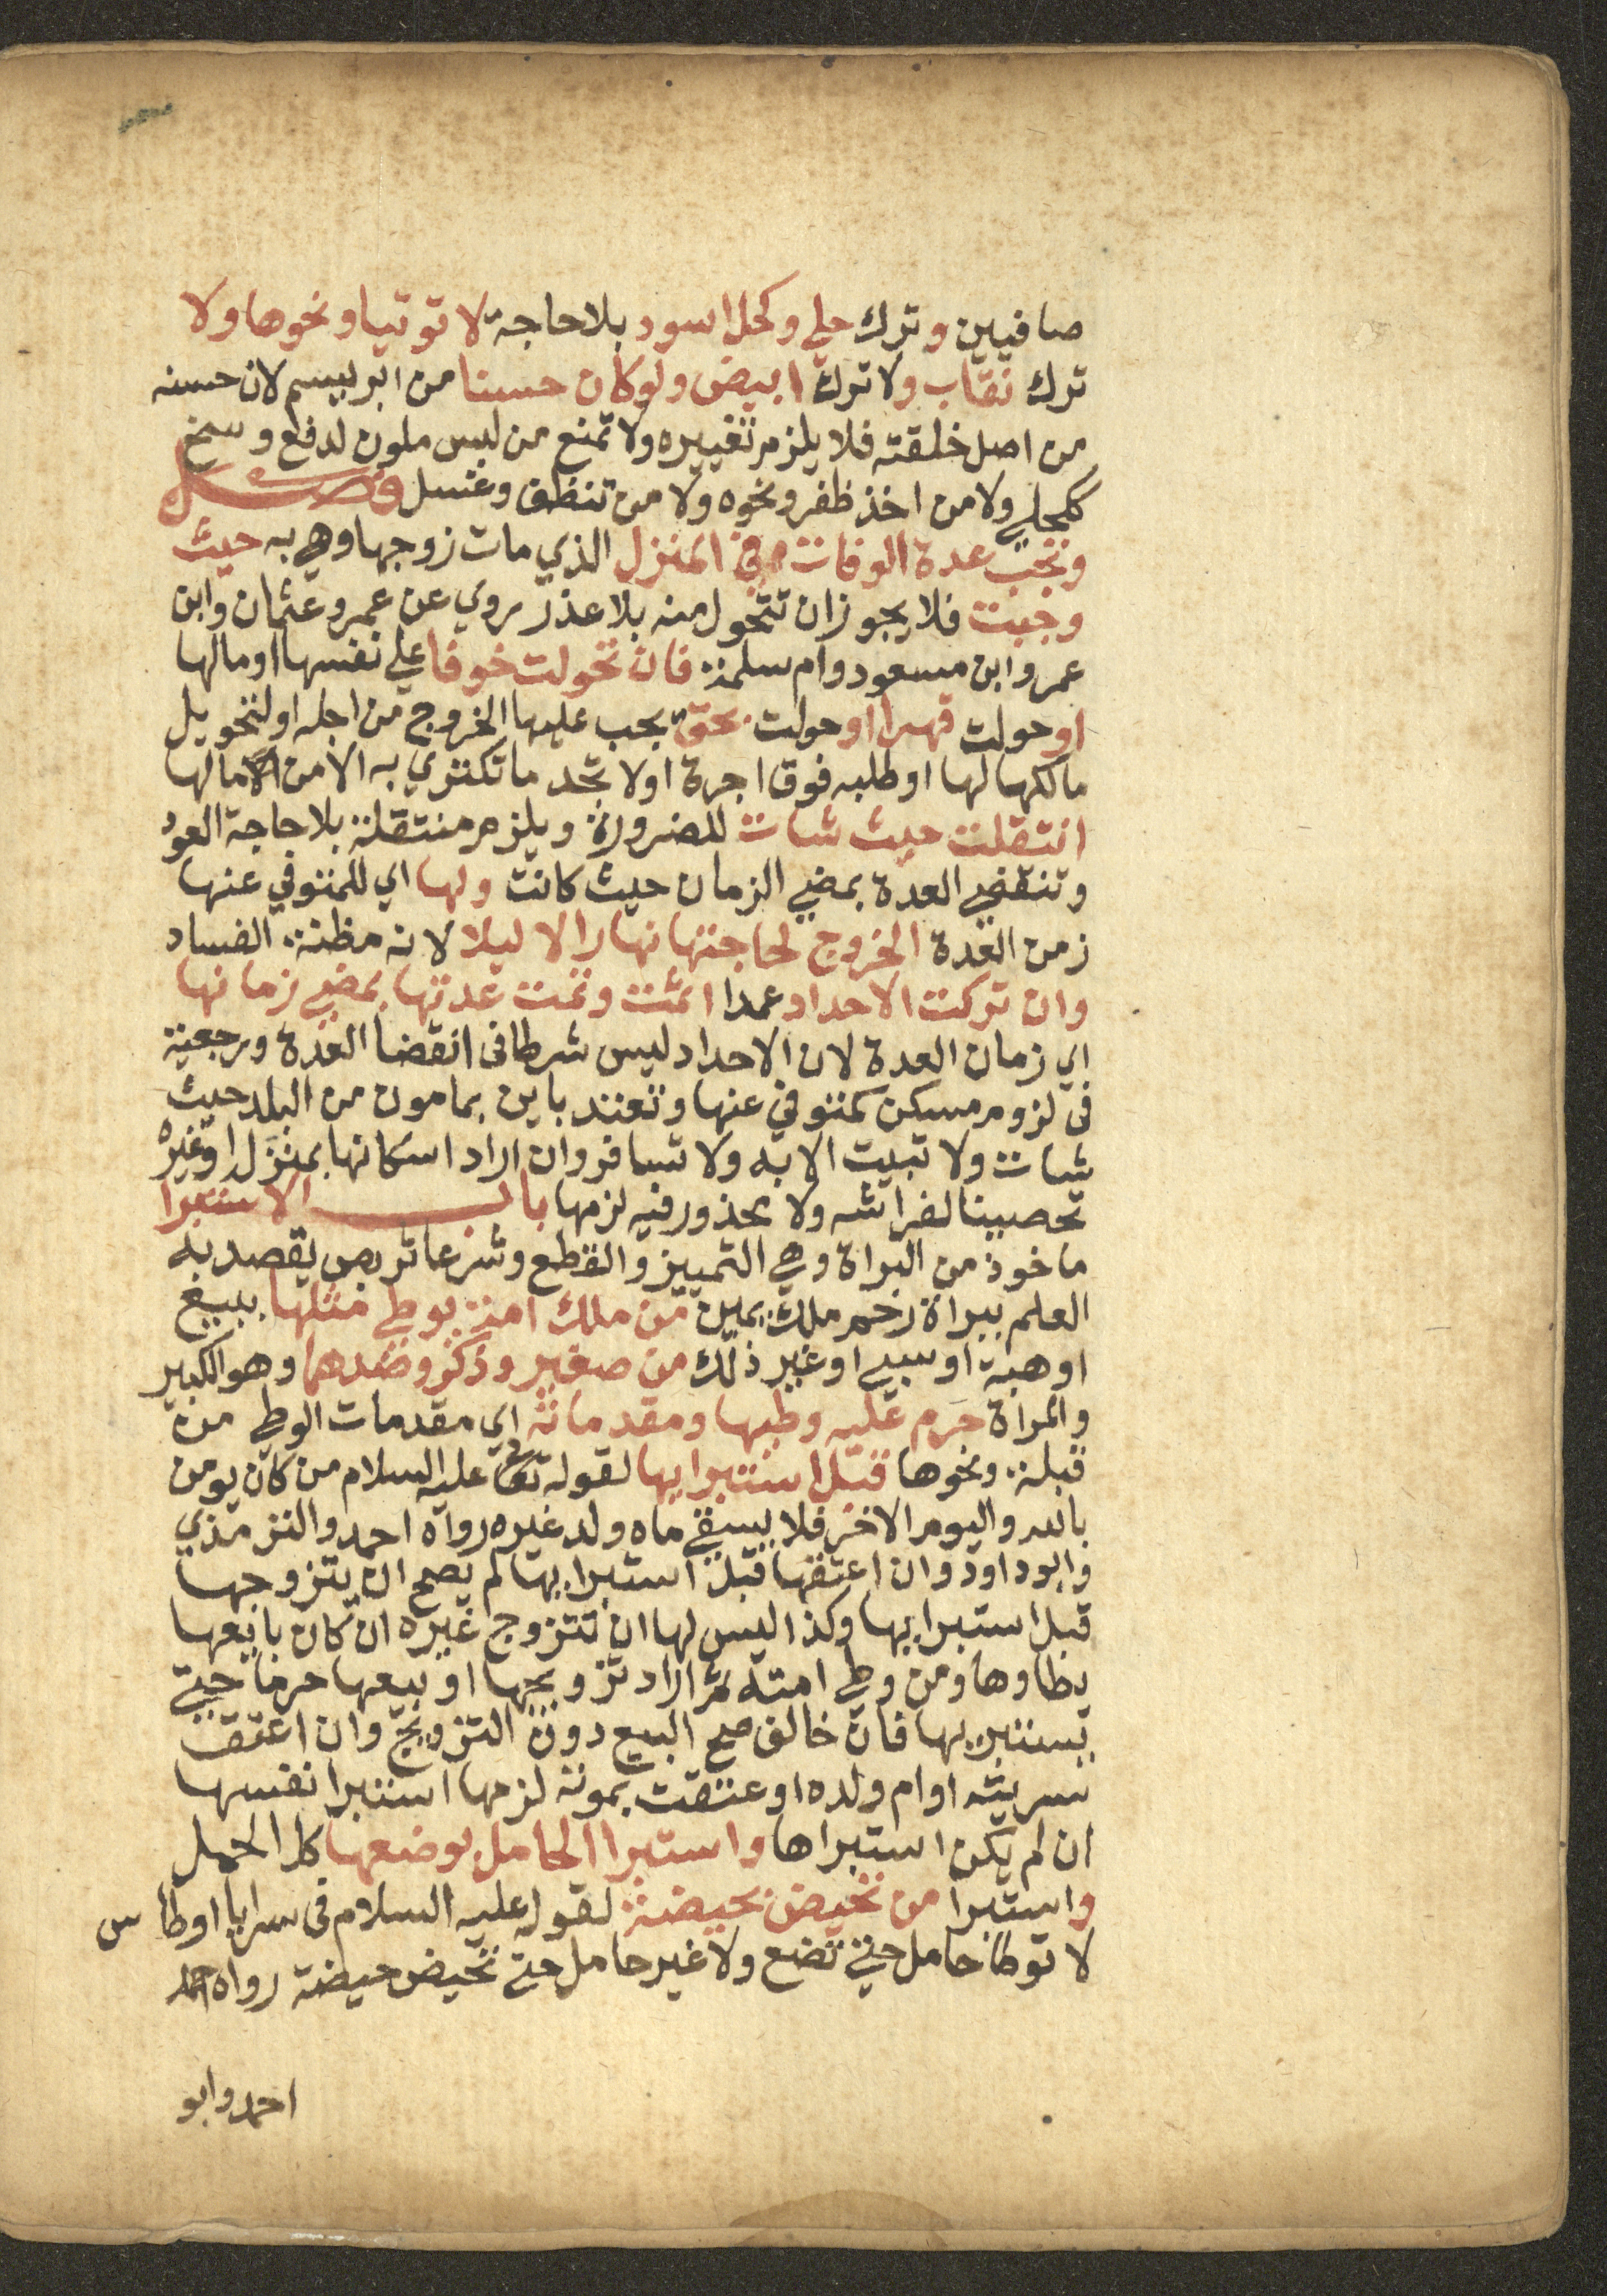 صافيين وترك حلي وكحل اسود بلا حاجة لا توتيا ونحوها ولا
ترك نقاب ولا ترك ابيض ولو كان حسنا من ابريسم لان حسنه
من اصل خلقته فلا يلزم تغييره ولا تمنع من لبس ملون لدفع وسخ
ككحلي ولا من اخذ ظفر ونحوه ولا من تنظف وغسل فصل
وتجب عدة الوفات في المنزل الذي مات زوجها وهي به حيث
وجبت فلا يجوز ان تتحول منه بلا عذر روي عن عمر وعثمان وابن
عمر وابن مسعود وام سلمة فان تحولت خوفا على نفسها او مالها
او حولت قهرا او حولت بحق يجب عليها الخروج من اجله او لتحويل
مالكها لها او طلبه فوق اجرة او لا تجد ما تكتري به الا من مالها
انتقلت حيث شات للضرورة ويلزم منتقلة بلا حاجة العود
وتنقضي العدة بمضي الزمان حيث كانت ولها اي للمتوفي عنها
زمن العدة الخروج لحاجتها نهارا لا ليلا لانه مظنة الفساد
وان تركت الاحداد عمدا اثمت وتمت عدتها بمضي زمانها
اي زمان العدة لان الاحداد ليس شرطا في انقضا العدة ورجعية
في لزوم مسكن كمتوفي عنها وتعتد باين بمامون من البلد حيث
شات ولا تبيت الا به ولا تسافر وان اراد اسكانها بمنزله او غيره
تحصينا لفراشه ولا محذور فيه لزمها باب الاستبرا
ماخوذ من البراة وهي التمييز والقطع وشرعا تربص يقصد به
العلم ببراة رحم ملك يمين من ملك امة يوطي مثلها ببيع
او هبة او سبي او غير ذلك من صغير وذكر وضدهما وهو الكبير
والمراة حرم عليه وطيها ومقدماته اي مقدمات الوطي من
قبلة ونحوها قبل استبرايها لقوله عليه السلام من كان يومن
بالله واليوم الاخر فلا يسقي ماه ولد غيره رواه احمد والترمذي
وابو داود وان اعتقها قبل استبرايها لم يصح ان يتزوجها
قبل استبرايها وكذا ليس لها ان تتزوج غيره ان كان بايعها
يطاوها ومن وطي امته ثم اراد تزويجها او بيعها حرما حتي
يستبريها فان خالف صح البيع دون التزويج وان اعتق
سريته او ام ولده او عتقت بموته لزمها استبرا نفسها
ان لم يكن استبراها واستبرا الحامل بوضعها كل الحمل
واستبرا من تحيض بحيضة لقوله عليه السلام في سرايا اوطاس
لا توطا حامل حتي تضع ولا غير حامل حتي تحيض حيضة رواه احمد
احمد وابو